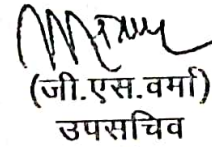 (जी.एस.वर्मा)
उपसचिव